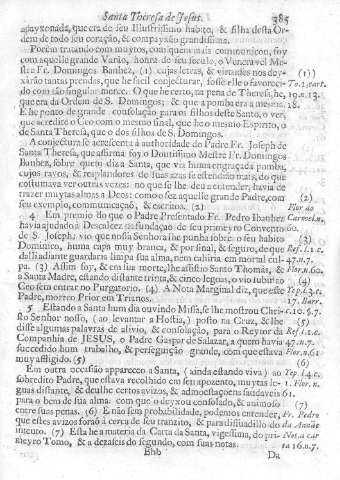 Santa Theresa de Jesus. 385
apayxonada, que era de seu Illustrissimo habito, & filha desta Or-
dem de todo seu coração, & compayxão grandissima.
Porèm tratando com muytos, com quem mais communicou, soy
com aquelle grande Varão, honra de seu seculo, o Veneravel Me-
stre Fr. Domingos Banhez, (1) cujas letras, & virtudes nos dey-
xàrão tantas prendas, que he facil conjecturar, fosse elle o favoreci-
do com tão singular merce. O que he certo, na pena de Theresa, he,
que era da Ordem de S. Domingos; & que a pomba era a mesma.
E he ponto de grande consolação para os filhos deste Santo, o ver,
que acredite o Ceo com o mesmo final, que he o mesmo Espirito, o
de Santa Theresa, que o dos filhos de S. Domingos.
A conjectura se acrescenta à authoridade do Padre Fr. Joseph de
Santa Theresa, que affirma soy o Doutissimo Mestre Fr. Domingos
Banhez, sobre quem diz a Santa, que via huma engraçada pomba,
cujos rayos, & resplandores de suas azas se estendião mais, do que
costumava ver outras vezes: no que se lhe deu a entender, havia de
trazer muytas almas a Deos: como o fez aquelle grande Padre, com
seu exemplo, communicação, & escritos. (2)
4 Em premio do que o Padre Presentado Fr. Pedro Ibanhez
havia ajudado à Descalcez na fundaçaõ de seu primeyro Convento
de S. Joseph, vio que nossa Senhora lhe punha sobre o seu habito
Dominico, huma capa muy branca, & por final, & seguro, de que
dalli adiante guardaria limpa sua alma, nem cahiria em mortal cul-
pa. (3) Assim soy, & em sua morte, lhe assistio Santo Thomás, &
a Santa Madre, estando distante trinta, & cinco legoas, o vio subir ao
Ceo sem entrar no Purgatorio. (4) A Nota Marginal diz, que este
Padre, morreo Prior em Trianos.
5 Estando a Santa hum dia ouvindo Missa, se lhe mostrou Chri-
sto Senhor nosso, (ao levantar a Hostia,) posto na Cruz, & lhe
disse algumas palavras de alivio, & consolação, para o Reytor da
Companhia de JESUS, o Padre Gaspar de Salazar, a quem havia
succedido hum trabalho, & perseguição grande, com que estava
muy affligido. (5)
Em outra occasião appareceo a Santa, (ainda estando viva) ao
sobredito Padre, que estava recolhido em seu aposento, muytas le-
goas distante, & deulhe certos avizos, & admoestações saudaveis
para o bem de sua alma: com que o deyxou consolado, & animoso
entre suas penas. (6) E não sem probabilidade, podemos entender,
que estes avizos foraõ à cerca de seu tranzito, & para dissuadillo do
intento. (7) Esta he a materia da Carta da Santa, vigessima, do pri-
meyro Tomo, & a dezaseis do segundo, com suas notas.
Bbb
Da
(1)
To. 2. cart.
18.
(2)